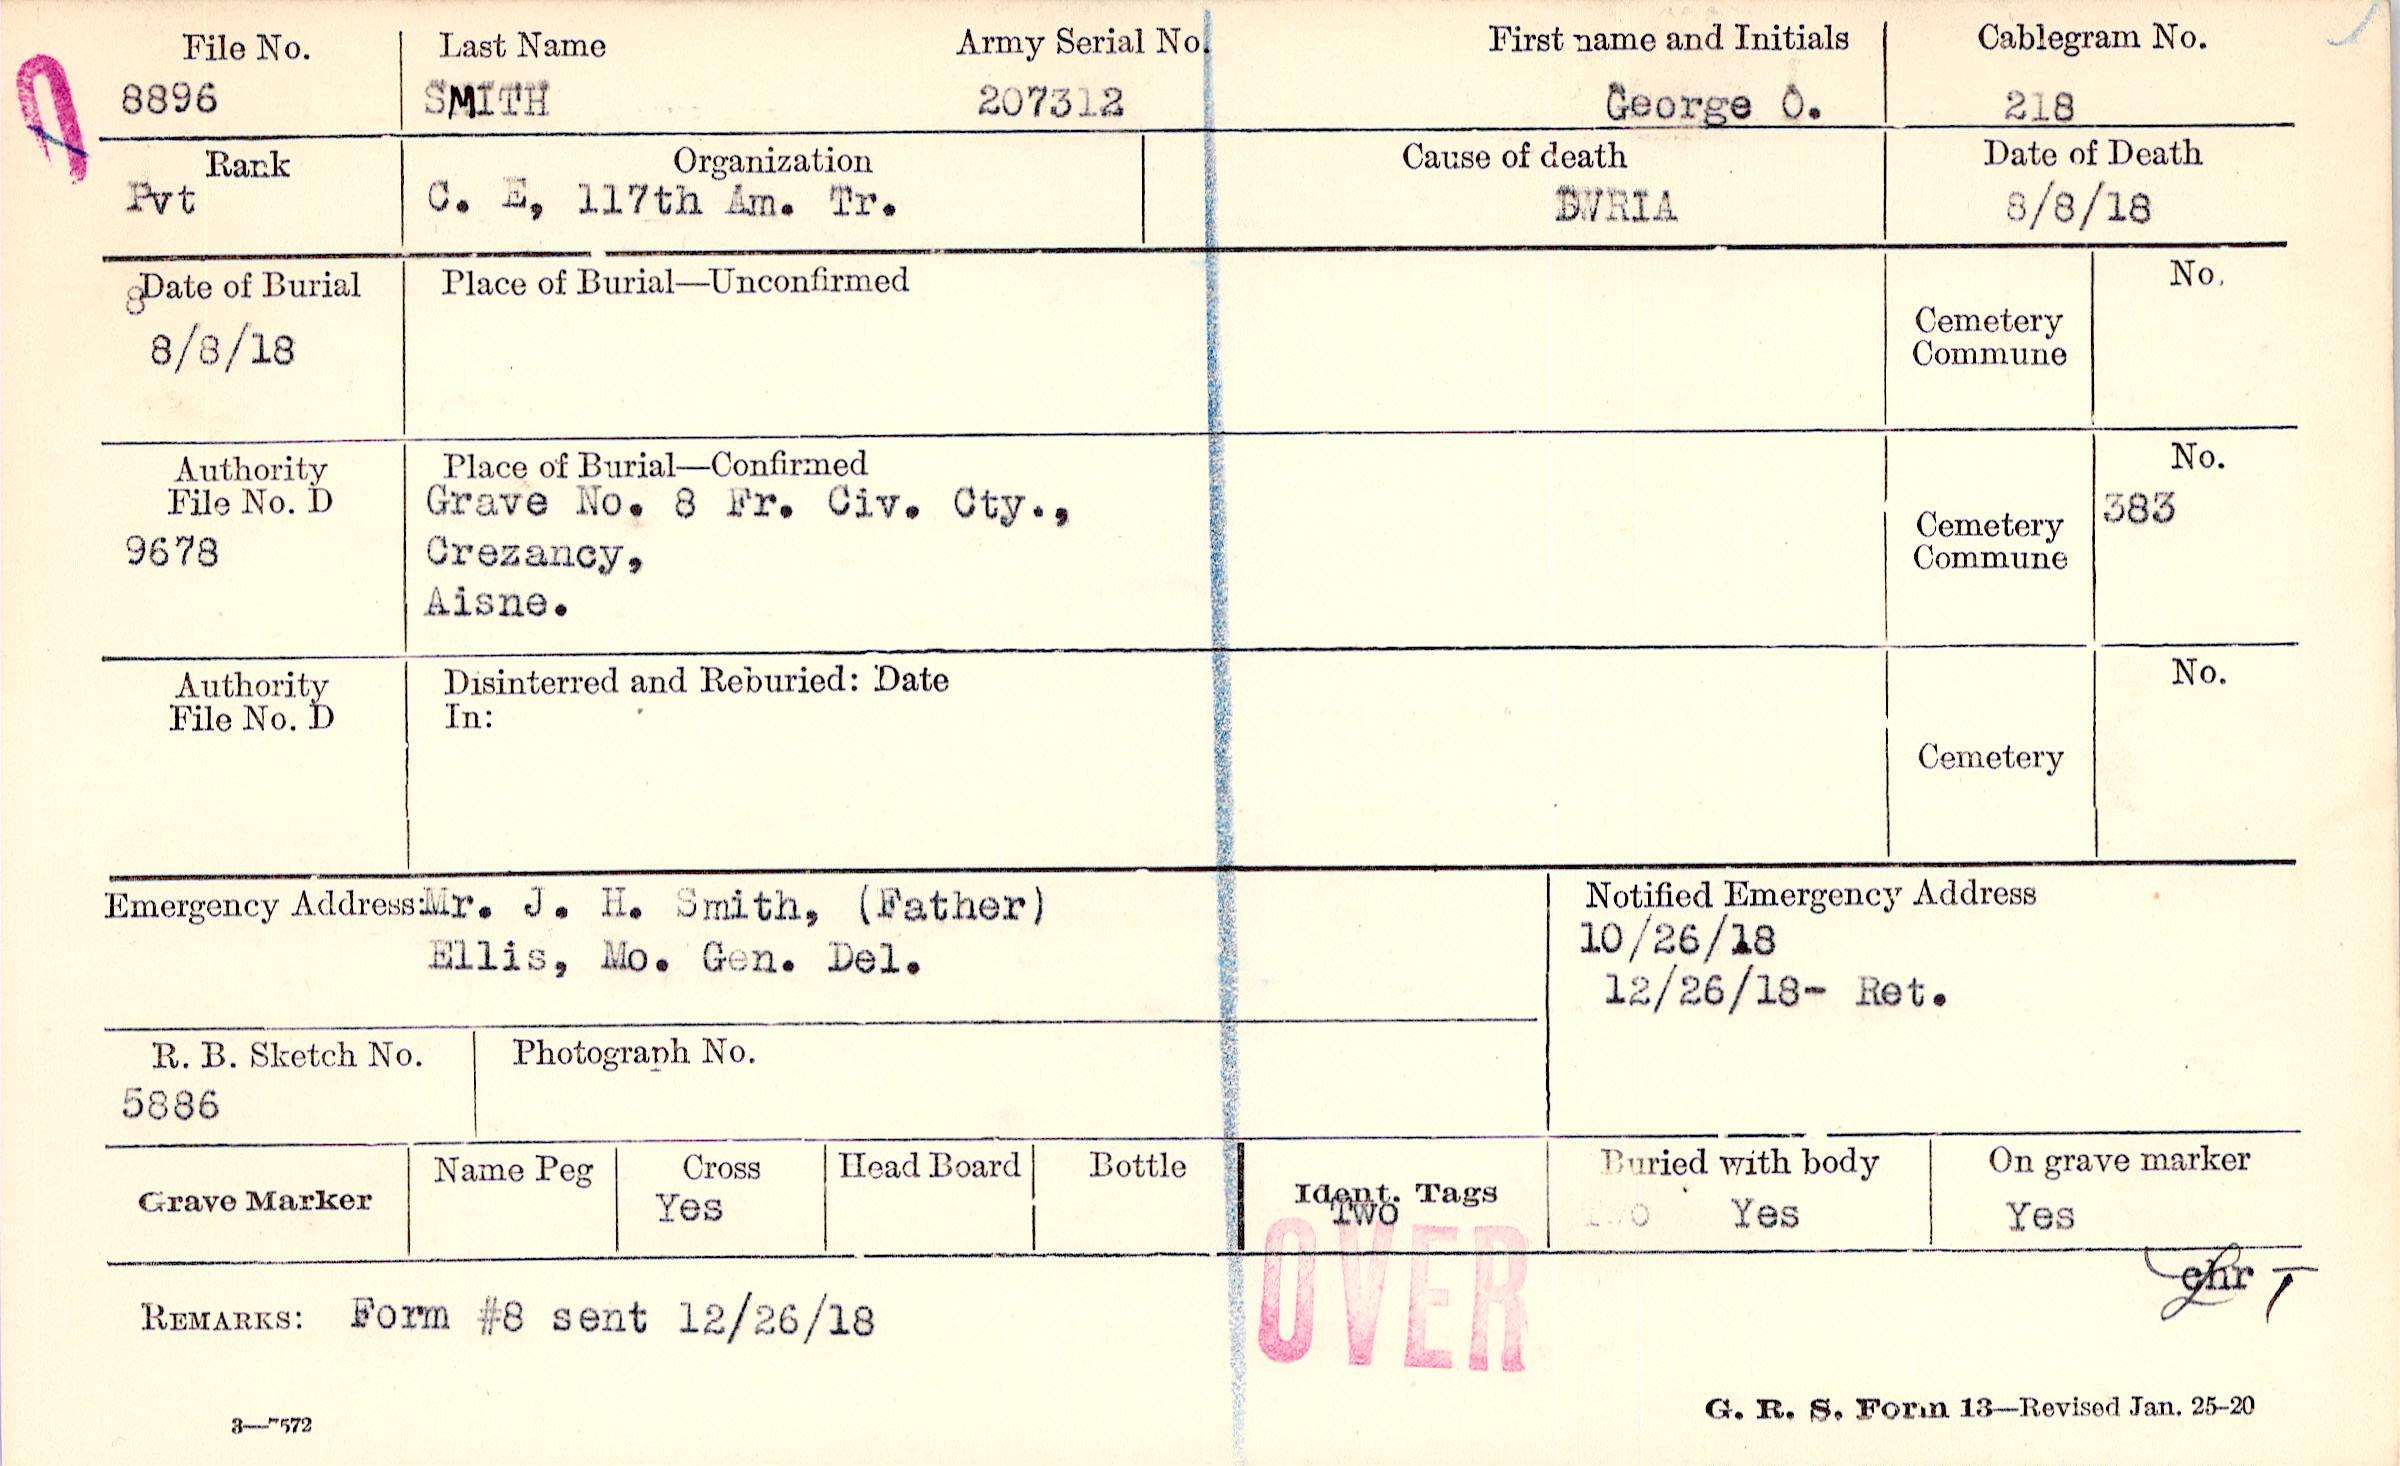 File No. Last Name Army Serial No. First name and Initials Cablegram No.
8896 SMITH 207312 George O. 218
Rank Organization Cause of death Date of Death
Pvt C. E, 117th Am. Tr. DWRIA 8/8/18
8
Date of Burial Place of Burial—Unconfirmed No.
8/8/18
Cemetery
Commune
Authority Place of Burial—Confirmed No.
File No. D Grave No. 8 Fr. Civ. Cty., 383
9678 Crezancy,
Aisne.
Cemetery
Commune
Authority Disinterred and Reburied: Date No.
File No. D In:
Cemetery
Emergency Address: Mr. J. H. Smith, (Father)
Ellis, Mo. Gen. Del.
Notified Emergency Address
10/26/18
12/26/18- Ret.
R. B. Sketch No. Photograph No.
5886
Grave Marker Name Peg Cross Head Board Bottle Ident. Tags Buried with body On grave marker
Yes Two Two Yes Yes
OVER
chr
REMARKS: Form #8 sent 12/26/18
3—7572
G. R. S. Form 13—Revised Jan. 25-20